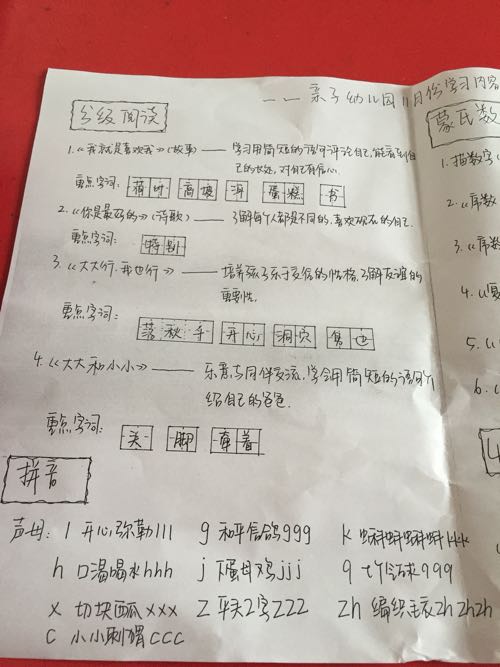 一一 亲子幼儿园11月份学习内容
分级阅读
1.《我就是喜欢我》(故事)——学习用简短的语句评论自己,能看到自
己的长处,对自己有信心.
重点字词: 荷叶 高坡 河 蛋糕 书
2.《你是最好的》(诗歌)——了解每个人都是不同的,喜欢现在的自己.
重点字词: 特别
3.《大大行,我也行》——培养孩子乐于交往的性格,了解友谊的
重要性.
重点字词: 荡秋千 开心 洞穴 信也
4.《大大和小小》——乐意与同伴交流,学会用简短的语句介
绍自己的爸爸.
重点字词: 关 脚 牵着
拼音
声母: l 开心弥勒lll g 和平信鸽ggg k 蝌蚪蝌蚪kkk
h 口渴喝水hhh j 下蛋母鸡jjj q 七个气球qqq
x 切块西瓜xxx z 平夹z字zzz zh 编织毛衣zhzhzh
c 小小刺猬ccc
蒙氏数
1.描数字
2.《席数
3.《席数
4.《复
5.《
6.《